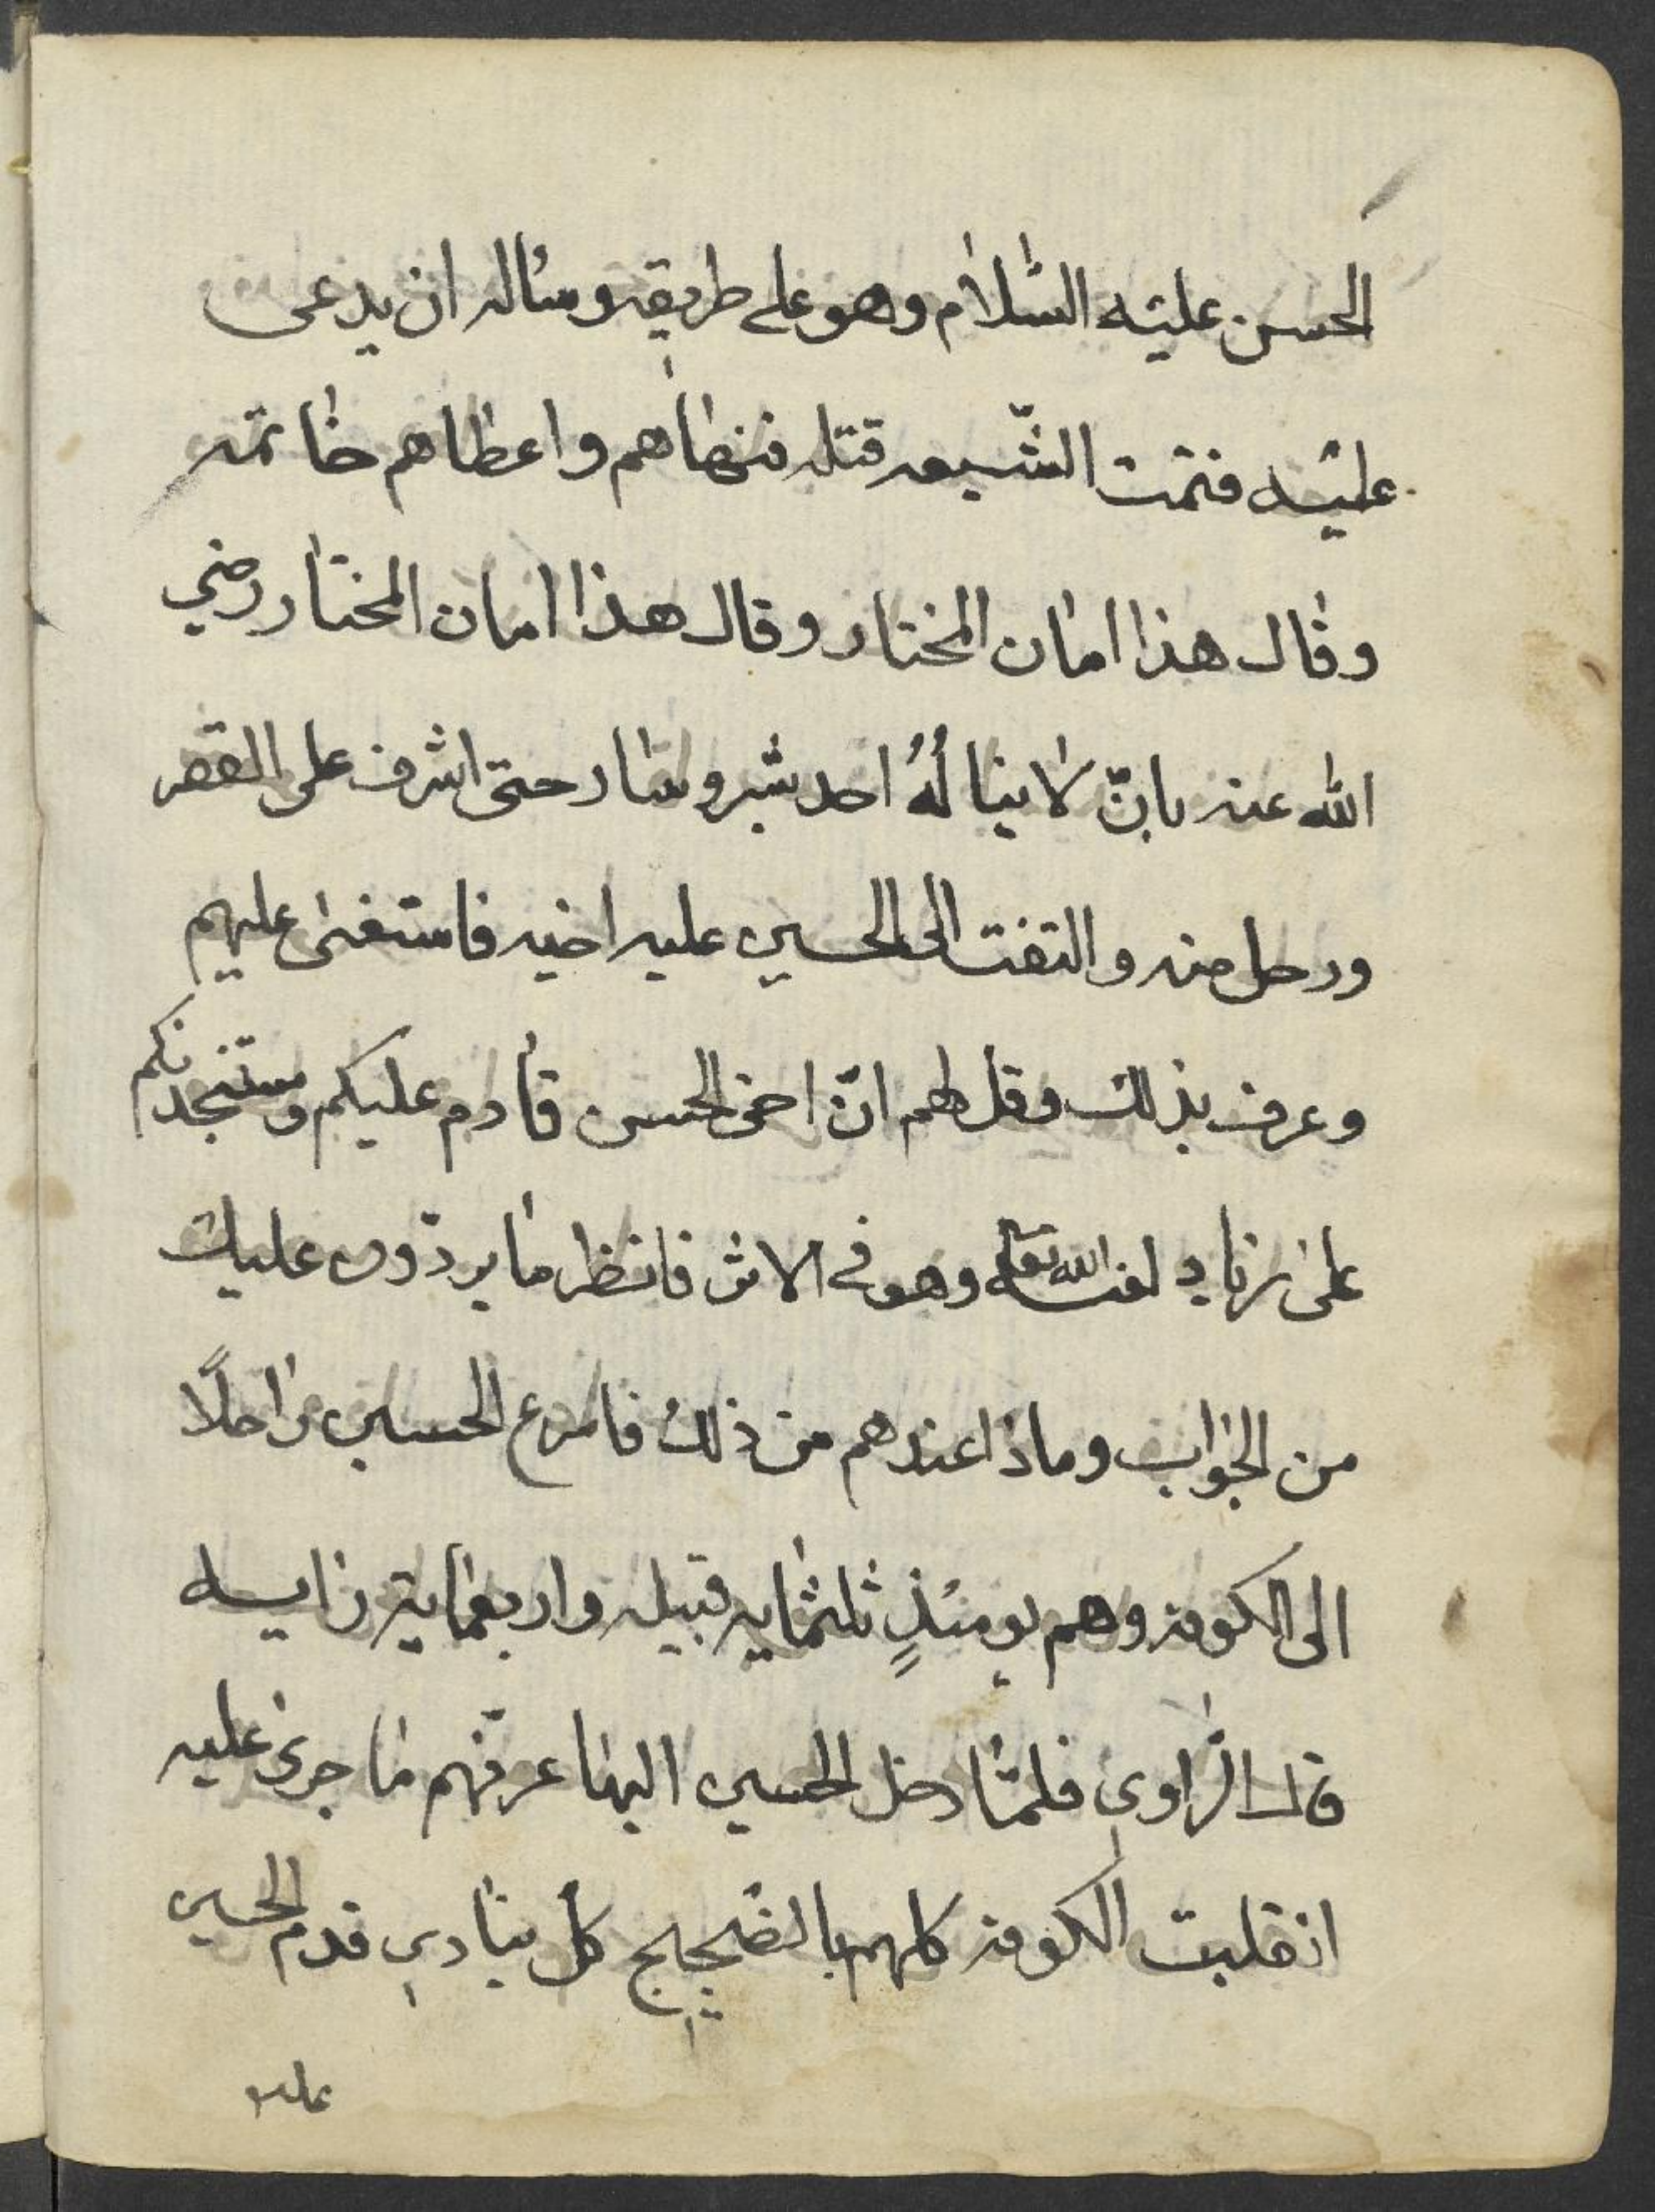 الحسن عليه السّلام وهو على طريقه وسئاله ان يدعى
عليه فتمت الشّيعه قتله فنهاهم واعطاهم خاتمه
وقال هذا امان المختار وقال هذا امان المختار رضي
الله عنه بانّ لا يناله احد بشر وسار حتى اشرف على القصر
ورحل منه والتفت الى الحسين عليه اخيه فاستغنى عليهم
وعرف بذلك وقل لهم انّ اخى الحسن قادم عليكم ومستنجدنكم
على زياد لعنه الله تعالى وهو فى الاثر فانظر ما يردّون عليك
من الجواب وماذا عندهم من ذلك فاسرع الحسين راحلًا
الى الكوفه وهم يومئذٍ ثلثمايه قبيله واربعمايه رايسه
قال الرّاوى فلمّا دخل الحسين اليها عرفهم ما جرى عليه
انقلبت الكوفه كلهم بالضجيج كل ينادى قدم الحسين
عليه